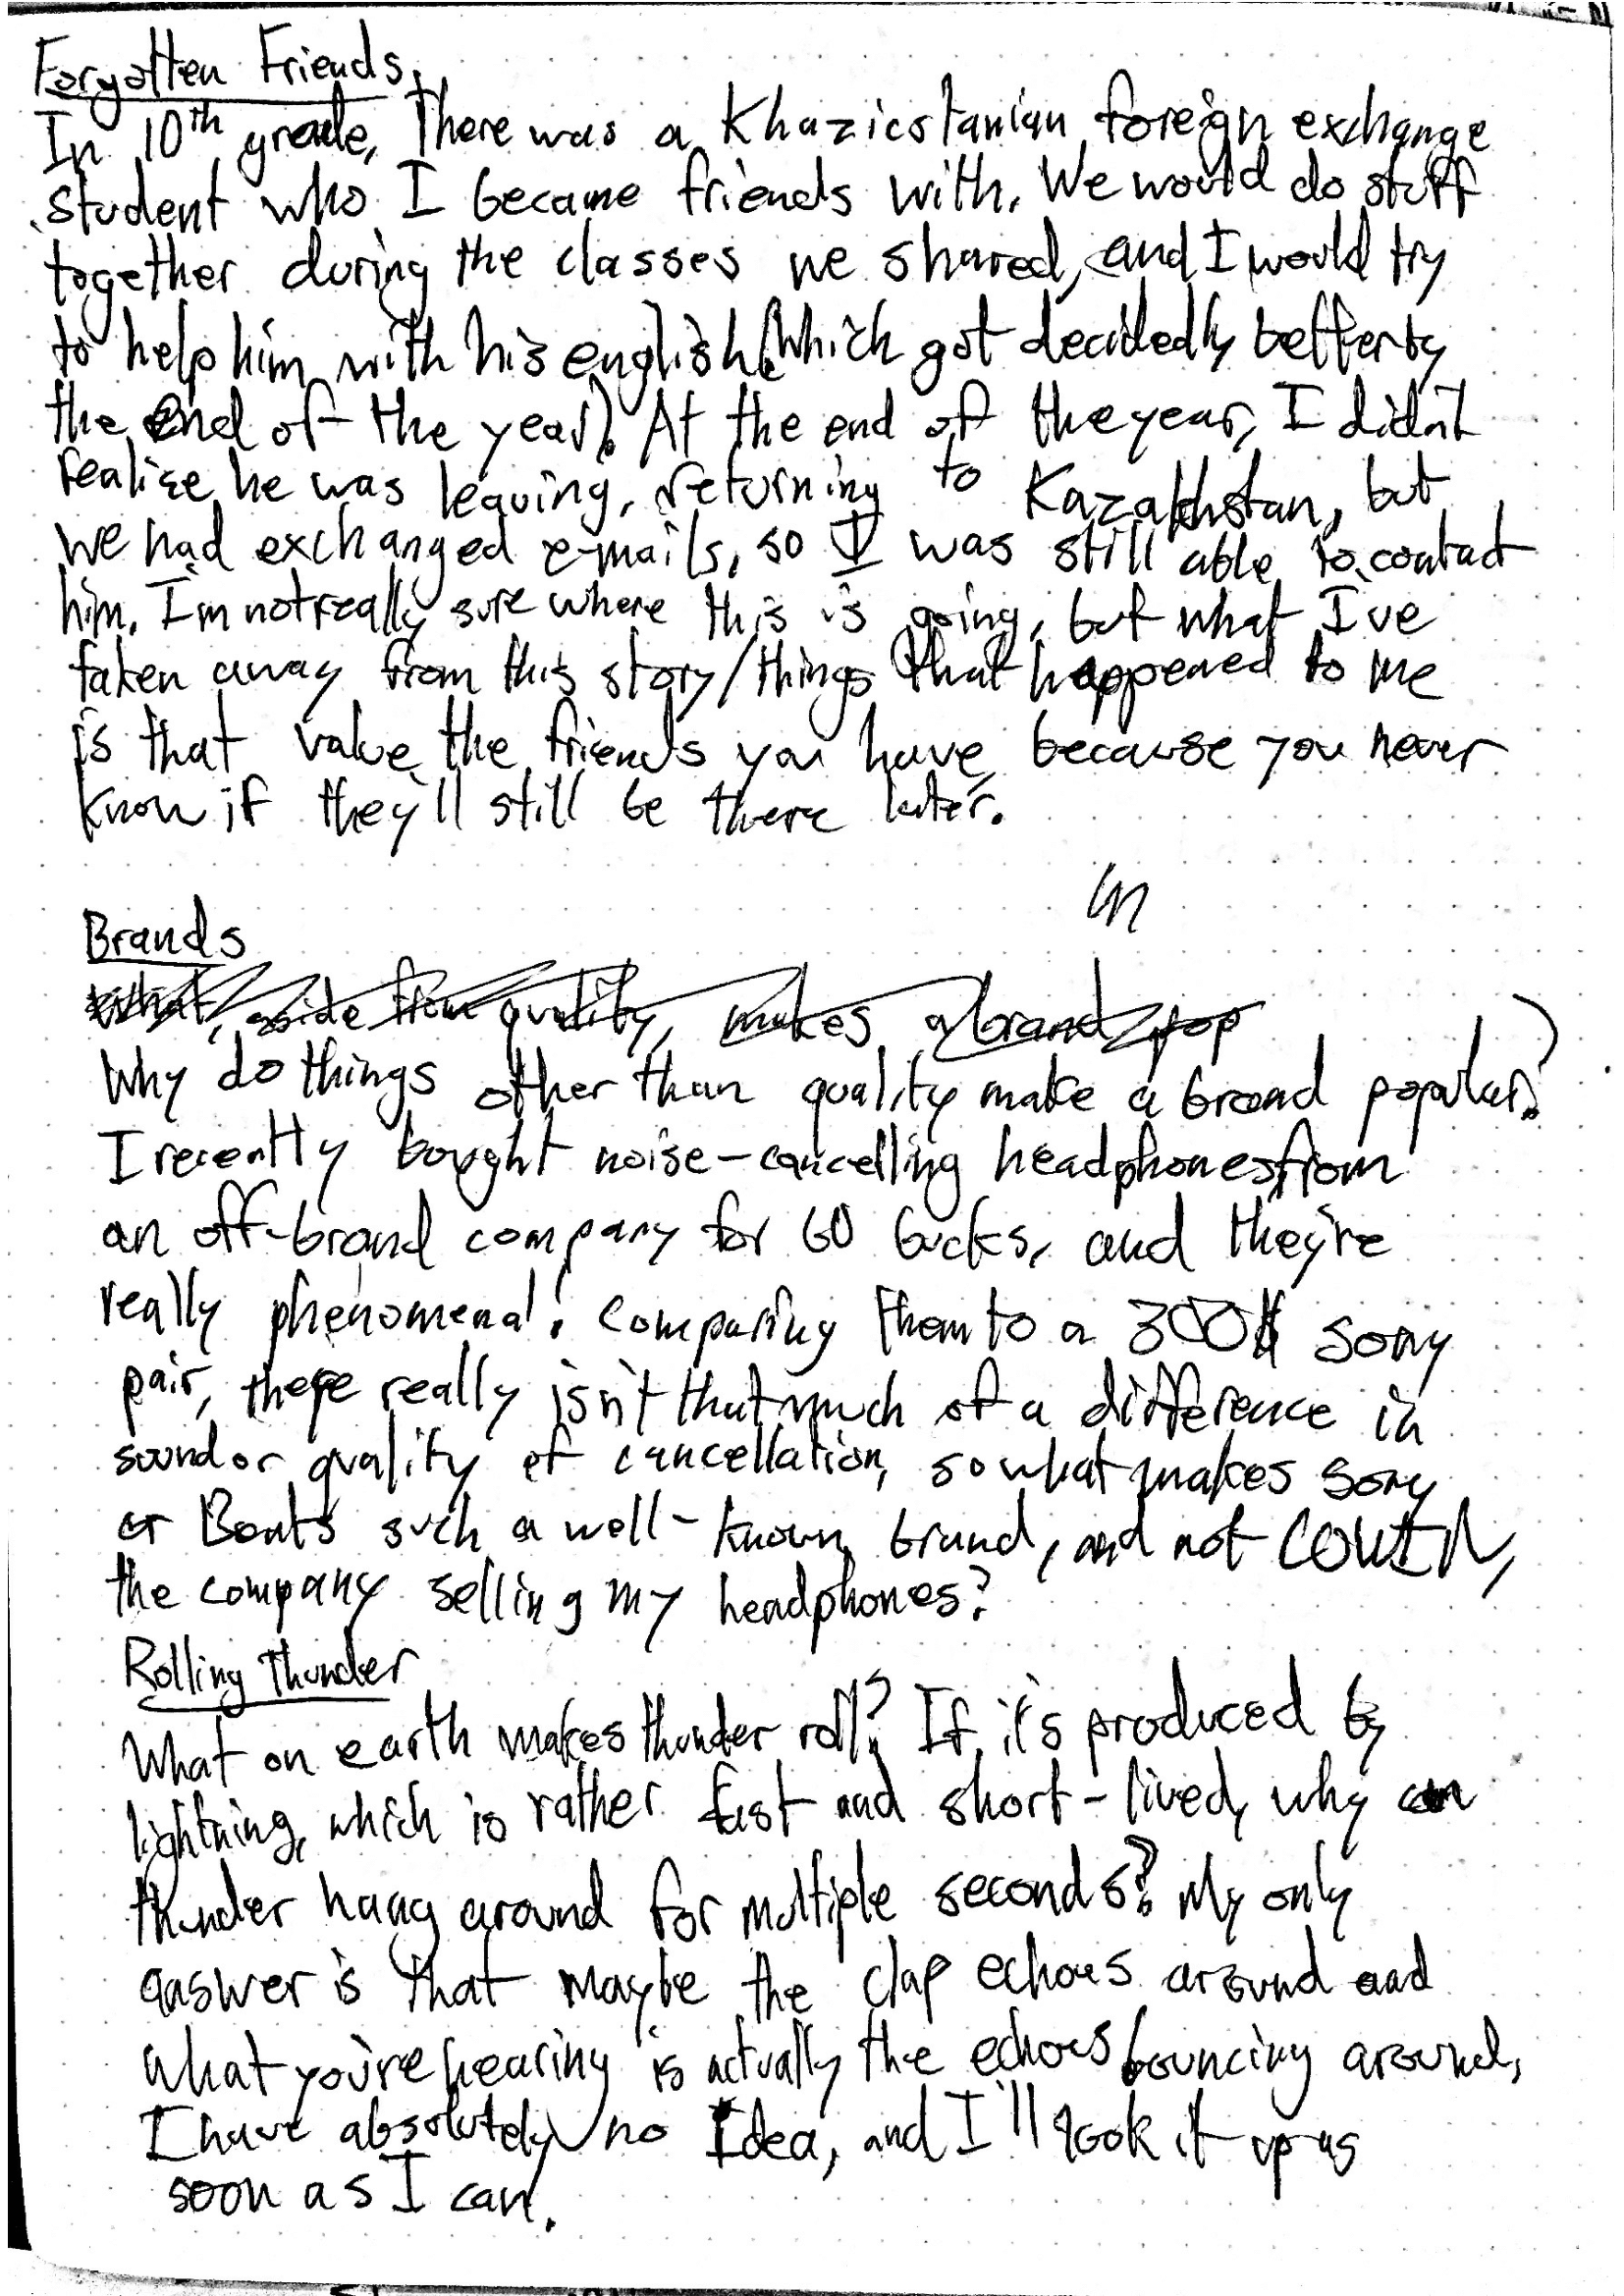 Forgotten Friends
In 10th grade, There was a Khazicstanian foreign exchange
student who I became friends with. We would do stuff
together during the classes we shared, and I would try
to help him with his english (which got decidedly better by
the end of the year). At the end of the year, I didn't
realize he was leaving, returning to Kazakhstan, but
we had exchanged e-mails, so I was still able to contact
him. I'm not really sure where this is going, but what I've
taken away from this story/things that happened to me
is that value the friends you have, because you never
know if they'll still be there later.
Brands
What, aside from quality, makes a brand pop
Why do things other than quality make a brand popular?
I recently bought noise-cancelling headphones from
an off-brand company for 60 bucks, and they're
really phenomenal. Comparing them to a 300$ Sony
pair, there really isn't that much of a difference in
sound or quality of cancellation, so what makes Sony
or Beats such a well-known brand, and not COWIN,
the company selling my headphones?
Rolling Thunder
What on earth makes thunder roll? If it's produced by
lightning, which is rather fast and short-lived, why can
thunder hang around for multiple seconds? My only
answer is that maybe the clap echoes around and
what you're hearing is actually the echoes bouncing around,
I have absolutely no Idea, and I'll look it up as
soon as I can.